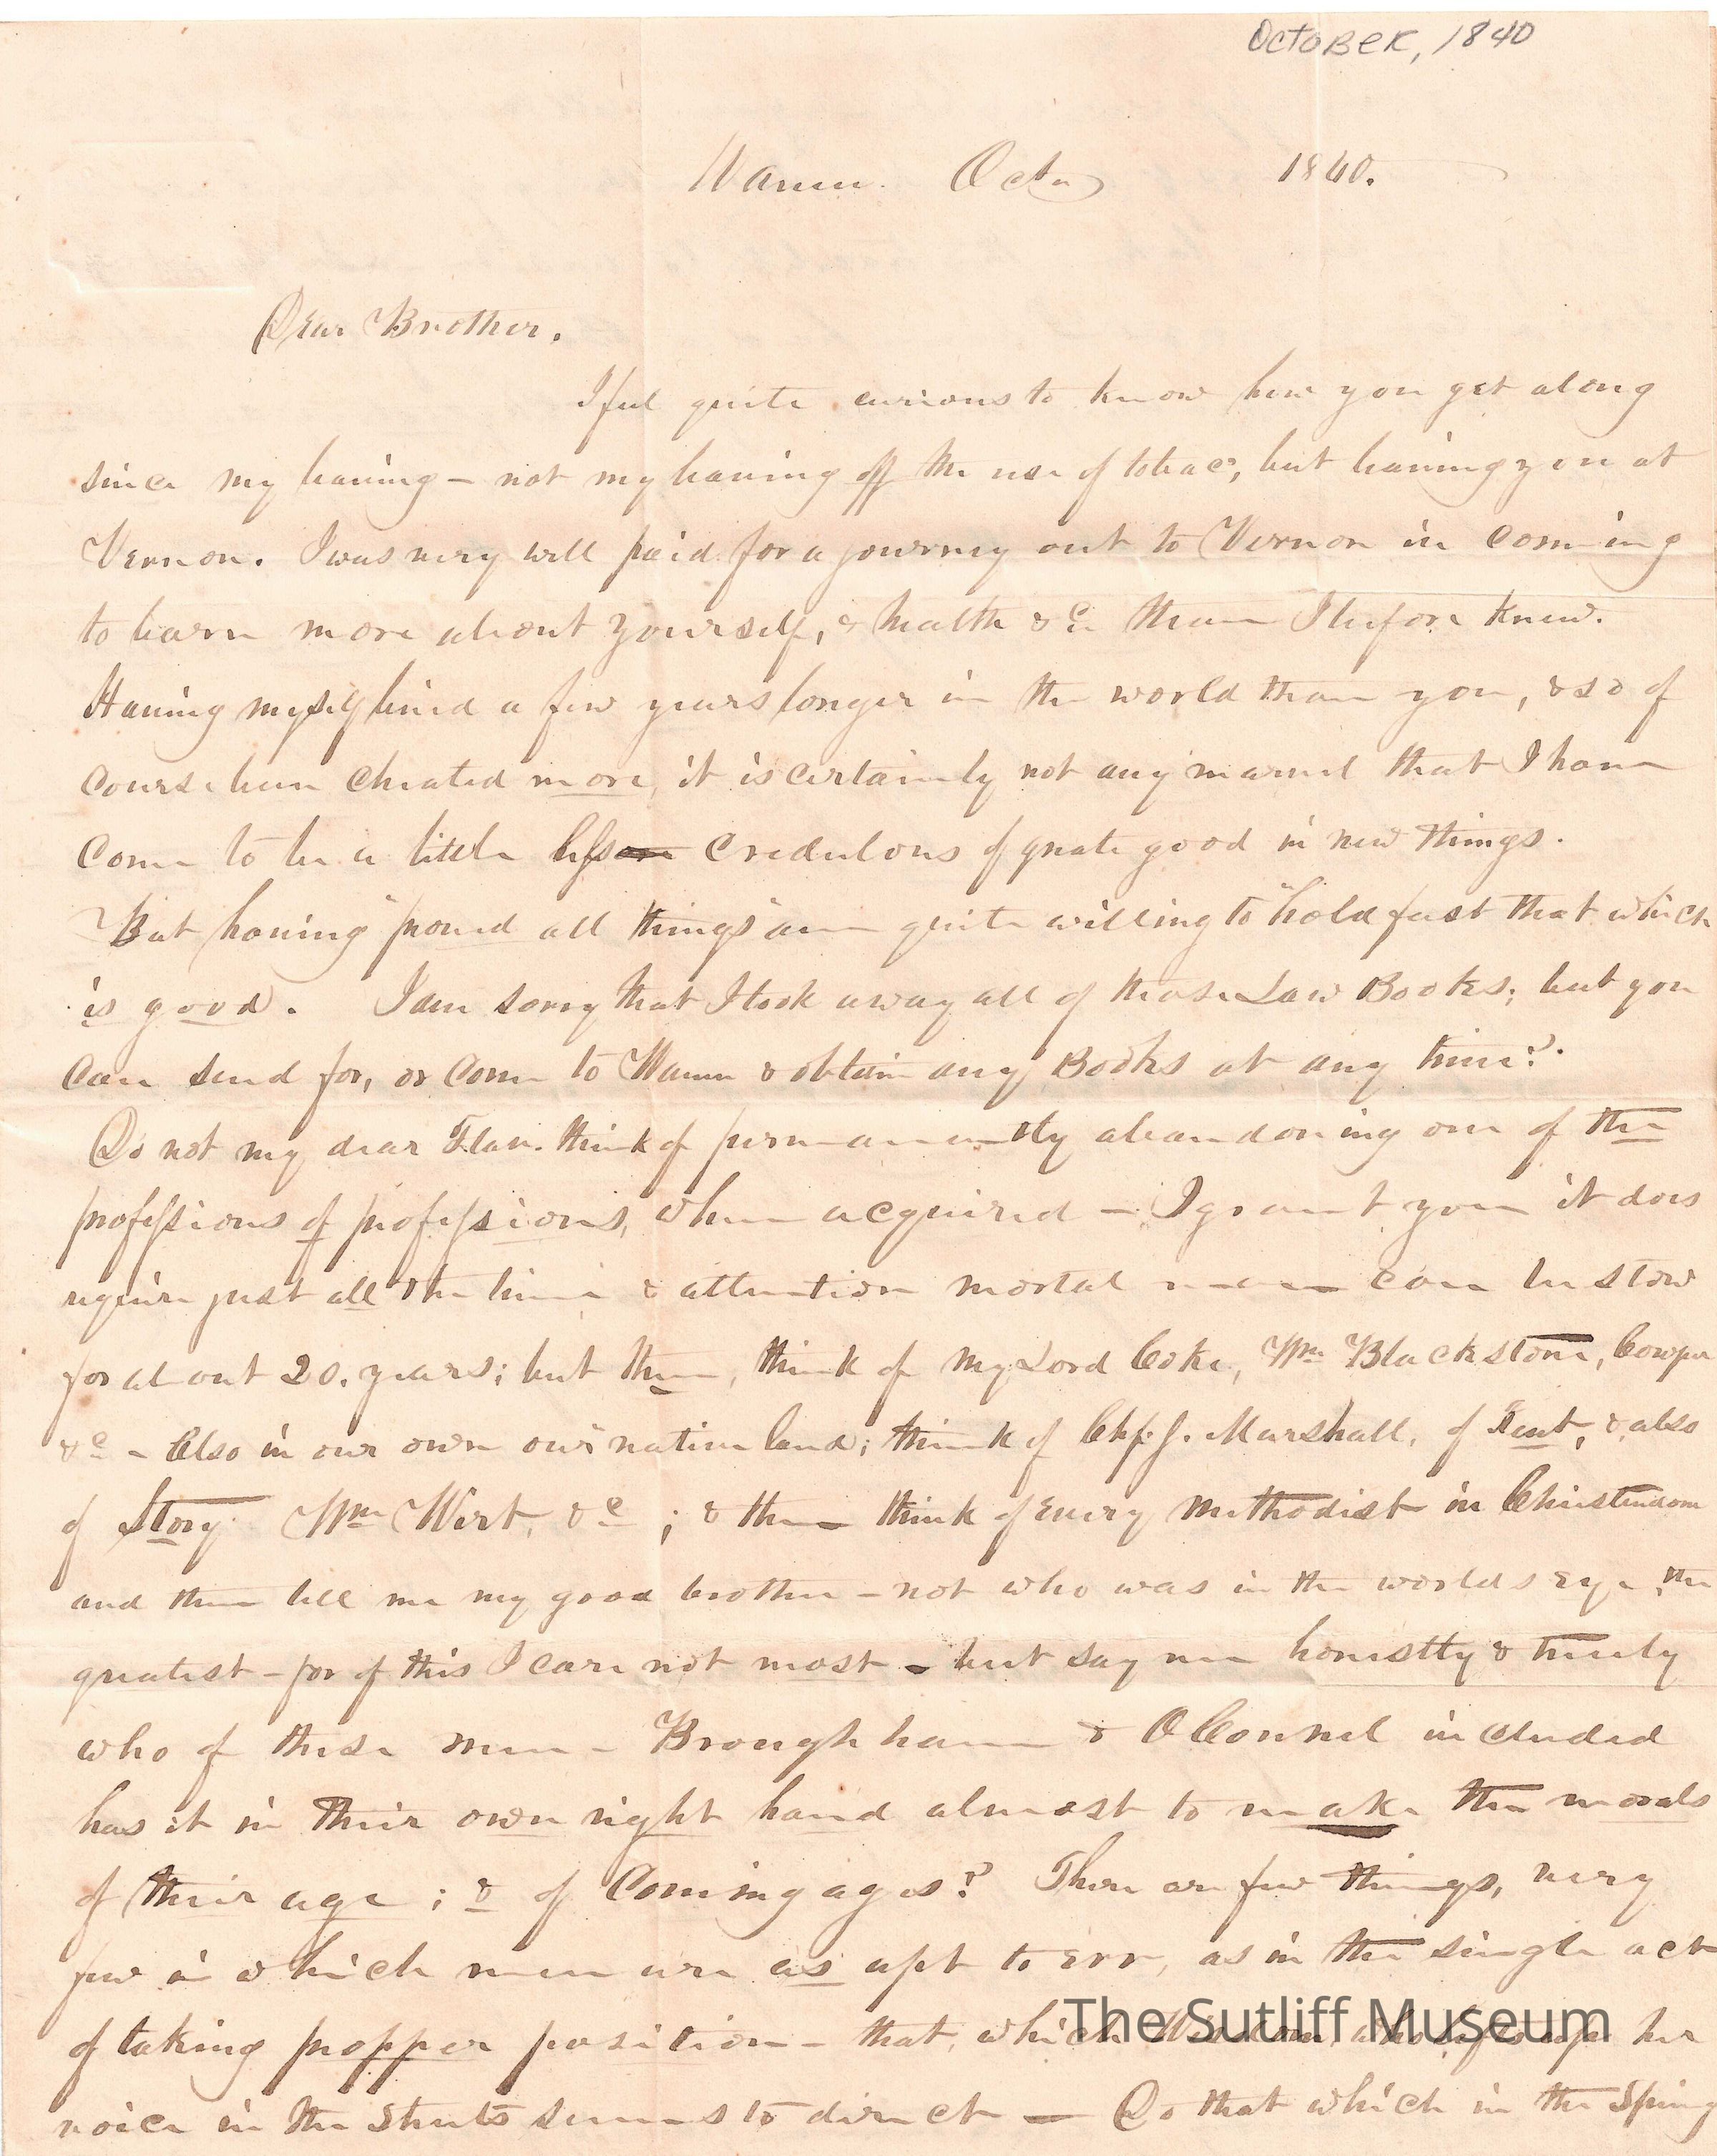 October, 1840
Warren. Octr 1840.
Dear Brother.
I feel quite curious to know how you get along
since my leaving - not my leaving off the use of tobaco, but leaving you at
Vernon. I was very well paid for a journey out to Vernon in coming
to learn more about yourself, & health &c than I before knew.
Having myself lived a few years longer in the world than you, & so of
course been cheated more, it is certainly not any marvel that I have
come to be a little less credulous of greate good in new things.
But having "proved all things" am quite willing to "hold fast that which
is good. I am sorry that I took away all of those Law Books; but you
can send for, or come to Warren & obtain any Books at any time?.
Do not my dear Flav. think of permanently abandoning one of the
professions of professions, when acquired - I grant you it does
require just all the time & attention mortal man can bestow
for about 20. years; but then, think of my Lord Coke, Wm Blackstone, Cowper
&c - Also in our own our native land; think of Chf. J. Marshall, of Kent, & also
of Story Wm Wirt, &c ; & then think of every Methodist in Christendom
and then tell me my good brother - not who was in the worlds eye, the
greatest - for of this I care not most - but say me honestly & truely
who of these men - Brougham & O Connel included
has it in their own right hand almost to make the morals
of their age ; & of Coming ages? There are few things, very
few in which men are as apt to err, as in the single act
of taking propper position - that, which Wisdom, who lifts up her
voice in the streets seems to direct - Do that which in the Spring
The Sutliff Museum